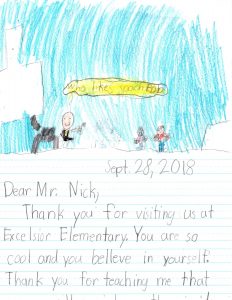 Who like
Sept. 28, 2018
Dear Mr. Nick,
Thank you for visiting us at
Excelsior Elementary. You are so
cool and you believe in yourself.
Thank you for teaching me that